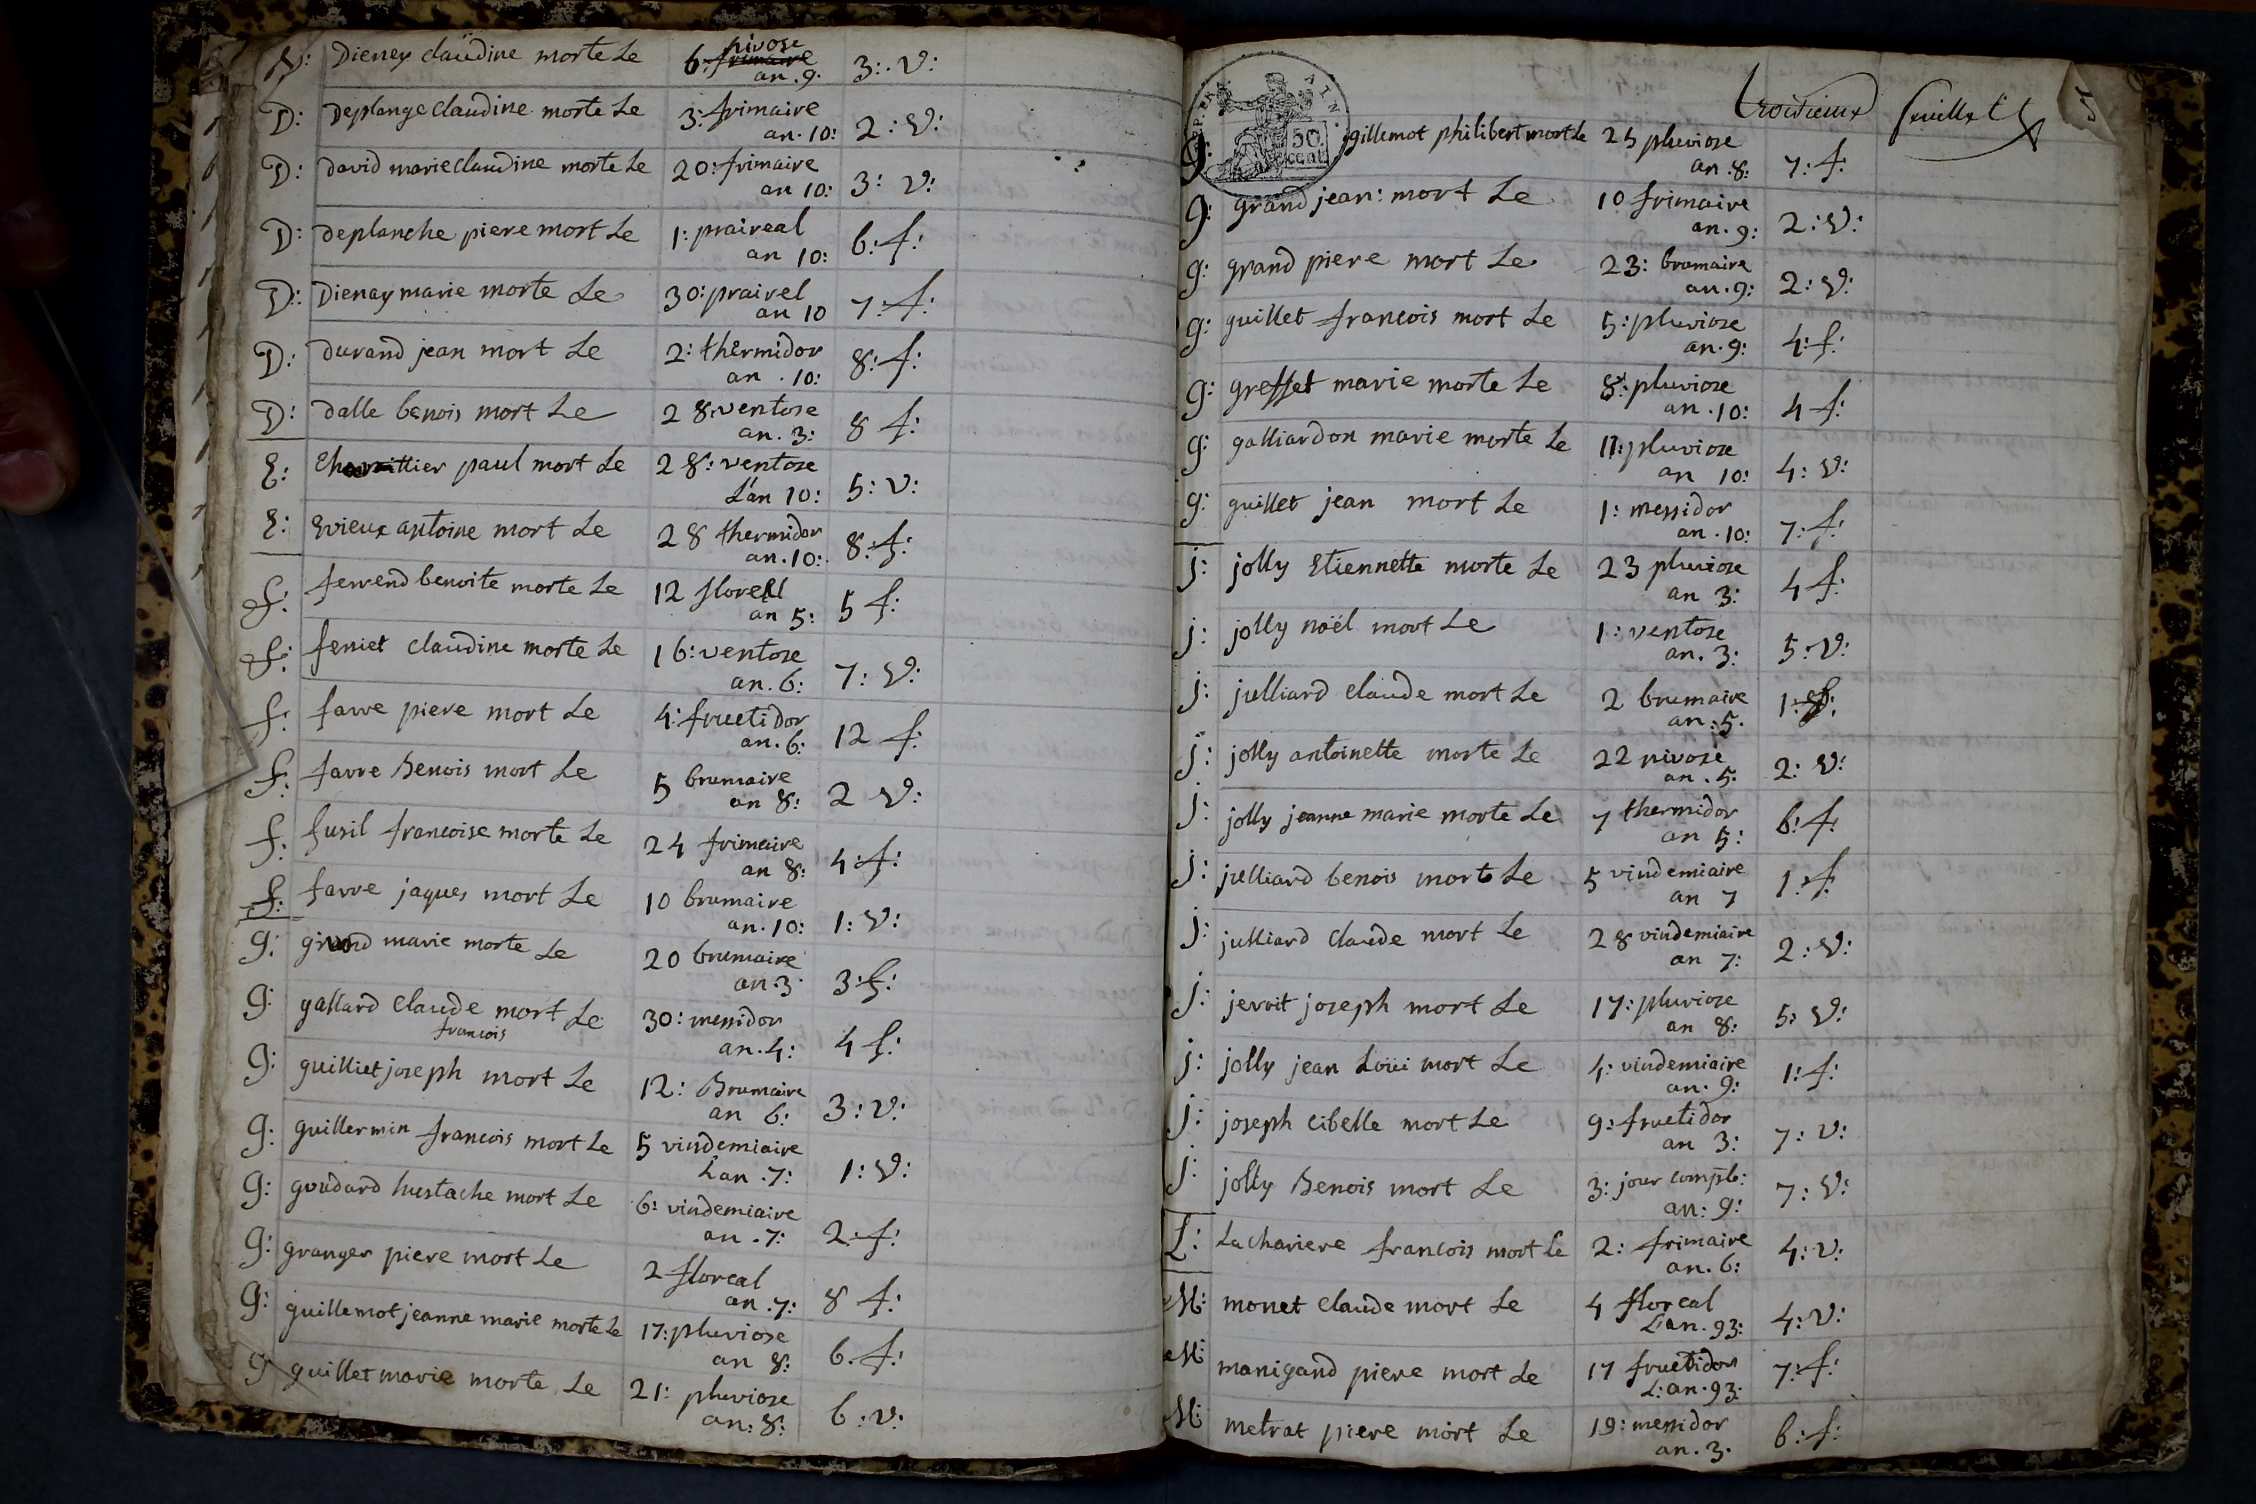 D: Dieney claudine morte Le 6: frimaire nivose an. 9. 3: v:
D: Deplange Claudine morte Le 3: frimaire an. 10: 2: v:
D: david marie Claudine morte Le 20: frimaire an 10: 3: v:
D: deplanche piere mort Le 1: praireal an 10: 6: f:
D: Dienay marie morte Le 30: prairel an 10 7: f:
D: durand jean mort Le 2: thermidor an. 10: 8: f:
D: dalle benois mort Le 28 ventose an. 3: 8 f:
E: paul mort Le 28: ventose L'an 10: 5: v:
E: Evieux antoine mort Le 28 thermidor an. 10: 8: f:
f: ferrend benoite morte Le 12 florell an 5: 5 f:
f: feniet claudine morte Le 16: ventose an. 6: 7: v:
f: farre piere mort Le 4: fructidor an. 6: 12 f:
f: farre Benois mort Le 5 brumaire an 8: 2 v:
f: fusil francoise morte Le 24 frimaire an 8: 4: f:
f: farre jaques mort Le 10 brumaire an. 10: 1: v:
g: marie morte Le 20 brumaire an. 3. 3: f:
g: gallard Claude francois mort Le 30: messidor an. 4: 4 f:
g: guilliet joseph mort Le 12: Brumaire an 6: 3: v:
g: guillermin francois mort Le 5 vindemiaire Lan. 7: 1: v:
g: goudard hustache mort Le 6: vindemiaire an. 7: 2: f:
g: granger piere mort Le 2 floreal an. 7: 8 f:
g: guillemot jeanne marie morte Le 17: pluviose an 8: 6. f:
g guillet marie morte Le 21: pluviose an: 8: 6: v:
troisieme feuillet
50 cent
g: gillemot philibert mort Le 25 pluviose an. 8: 7: f:
g: grand jean: mort Le 10 frimaire an. 9: 2: v:
g: grand piere mort Le 23: brumaire an. 9: 2: v:
g: guillet francois mort Le 5: pluviose an. 9: 4: f:
g: gresset marie morte Le 8: pluviose an. 10: 4 f:
g: galliardon marie morte Le 11: pluviose an 10: 4: v:
g: guillet jean mort Le 1: messidor an. 10: 7: f:
j: jolly Etiennette morte Le 23 pluviose an 3: 4 f:
j: jolly noël mort Le 1: ventose an. 3: 5: v:
j: julliard claude mort Le 2 brumaire an: 5. 1: f:
j: jolly antoinette morte Le 22 nivose an. 5: 2: v:
j: jolly jeanne marie morte Le 7 thermidor an 5: 6: f:
j: julliard benois mort Le 5 vindemiaire an 7 1: f:
j: julliard Claude mort Le 28 vindemiaire an 7: 2: v:
j: jeroit joseph mort Le 17: pluviose an 8: 5: v:
j: jolly jean Loüi mort Le 4: vindemiaire an. 9: 1: f:
j: joseph Cibelle mort Le 9: fructidor an 3: 7: v:
j: jolly Benois mort Le 3: jour complé: an: 9: 7: v:
L: La chariere francois mort Le 2: frimaire an. 6: 4: v:
M: monet claude mort Le 4 floreal L'an. 93: 4: v:
M: manigand piere mort Le 17 fructidor L: an. 93. 7: f:
M: metrat piere mort Le 19: messidor an. 3. 6: f: